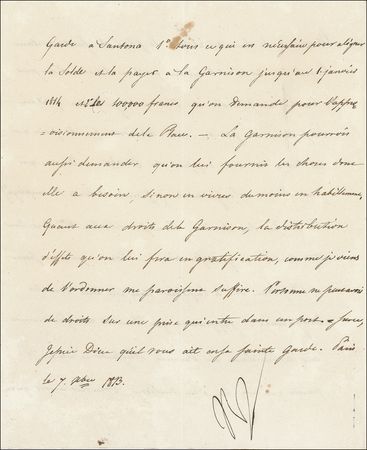 Garde à Santona 1° tous ce qui en nécessaire pour aligner
la Solde et la payer à la Garnison jusqu'au 1 janvier
1814 et les 100000 francs qu'on demande pour l'appro
=visionnement de la Place. — La Garnison pourrois
aussi demander, qu'on lui fournis les choses dont
elle a besoin, si non en vivres du moins en habillement,
Quant aux droits de la Garnison, la distribution
d'effets qu'on lui fera en gratification, comme je viens
de l'ordonner me paroissent suffire. Personne ne peut avoir
de droits sur une prise qui entre dans un port. — Sur ce,
Je prie Dieu qu'il vous ait en sa sainte Garde. Paris
le 7. Xbre 1813.